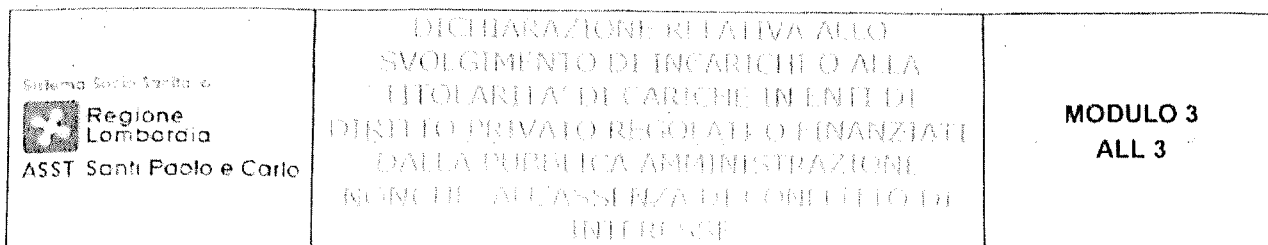 Sistema Socio Sanitario
Regione
Lombardia
ASST Santi Paolo e Carlo
DICHIARAZIONE RELATIVA ALLO
SVOLGIMENTO DI INCARICHI O ALLA
TITOLARITA' DI CARICHE IN ENTI DI
DIRITTO PRIVATO REGOLATI O FINANZIATI
DALLA PUBBLICA AMMINISTRAZIONE
NONCHE' ALL'ASSENZA DI CONFLITTO DI
INTERESSE
MODULO 3
ALL 3